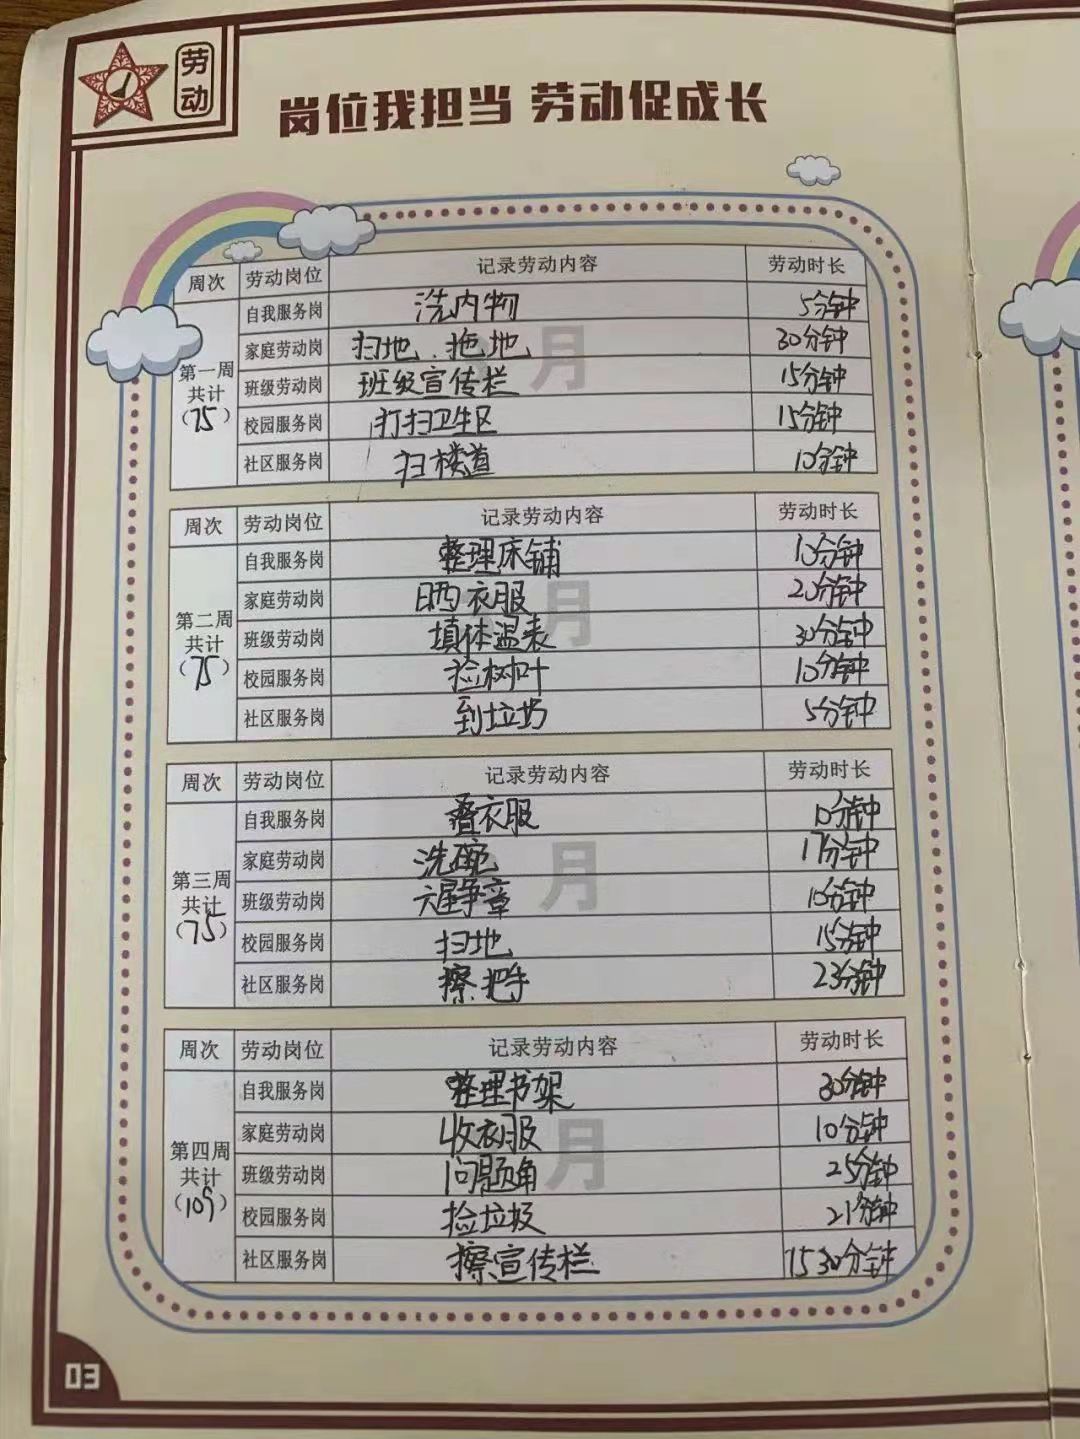 劳动
岗位我担当 劳动促成长
周次 劳动岗位 记录劳动内容 劳动时长
第一周
共计
(75)
自我服务岗 洗内物 5分钟
家庭劳动岗 扫地、拖地 30分钟
班级劳动岗 班级宣传栏 15分钟
校园服务岗 打扫卫生区 15分钟
社区服务岗 扫楼道 10分钟
月
周次 劳动岗位 记录劳动内容 劳动时长
第二周
共计
(75)
自我服务岗 整理床铺 10分钟
家庭劳动岗 晒衣服 20分钟
班级劳动岗 填体温表 30分钟
校园服务岗 捡树叶 10分钟
社区服务岗 到垃圾 5分钟
月
周次 劳动岗位 记录劳动内容 劳动时长
第三周
共计
(75)
自我服务岗 叠衣服 10分钟
家庭劳动岗 洗碗 17分钟
班级劳动岗 六星争章 10分钟
校园服务岗 扫地 15分钟
社区服务岗 擦把手 23分钟
月
周次 劳动岗位 记录劳动内容 劳动时长
第四周
共计
(109)
自我服务岗 整理书架 30分钟
家庭劳动岗 收衣服 10分钟
班级劳动岗 问题角 25分钟
校园服务岗 捡垃圾 21分钟
社区服务岗 擦宣传栏 30分钟
月
03